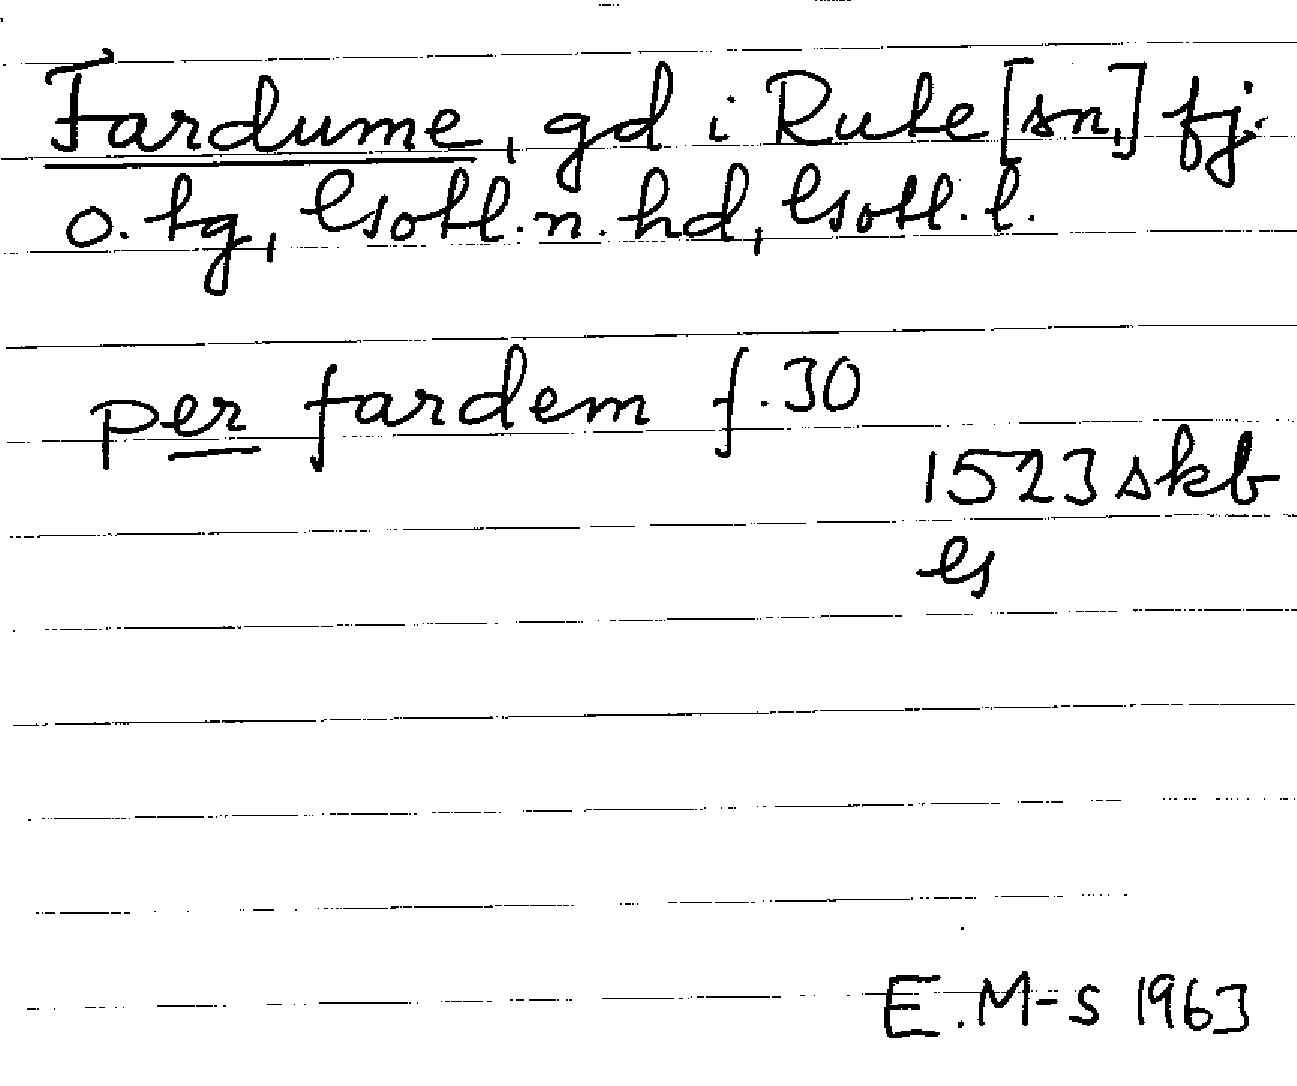 Fardume, gd i Rute [sn,] fj.
o. tg, Gotl. n. hd, Gotl. l.
per fardem f. 30
1523 skb
G
E. M-S 1963